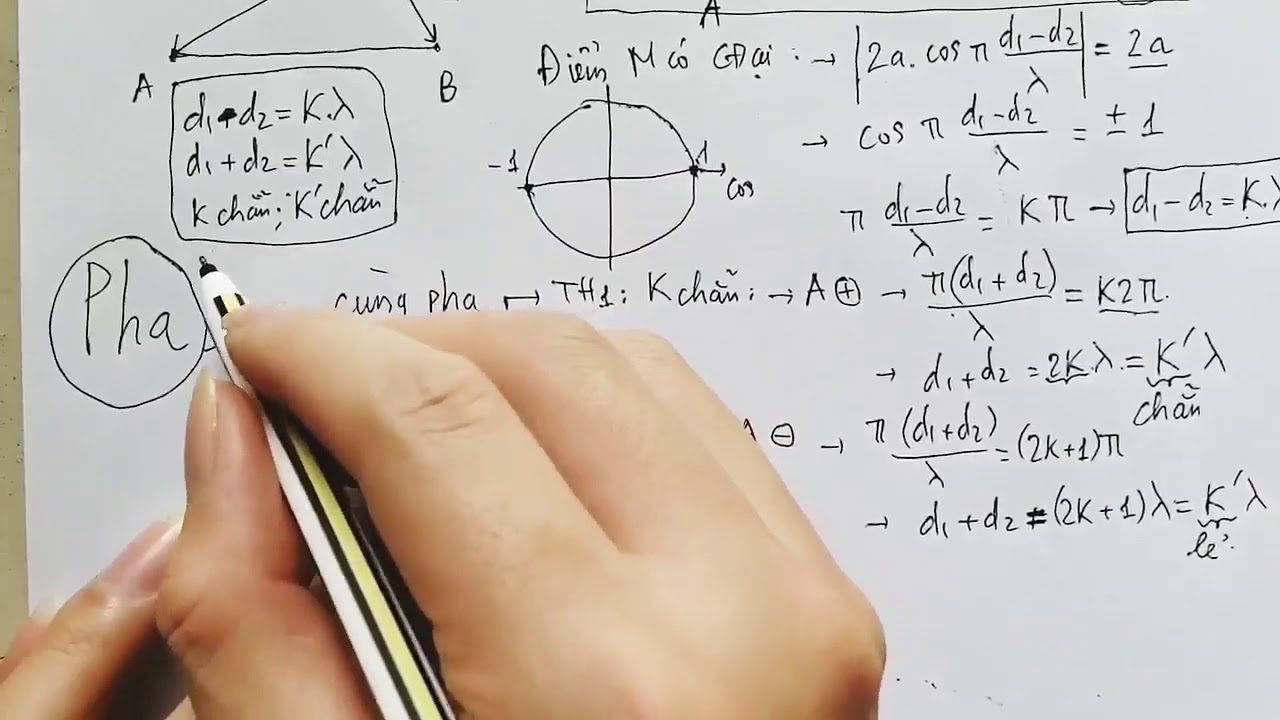 A
A B
d1 - d2 = K.λ
d1 + d2 = K'λ
K chẵn; K'chẵn
Điểm M có CĐại : → |2a. cos π (d1 - d2)/λ| = 2a
-1 1 cos
→ cos π (d1 - d2)/λ = ± 1
π (d1 - d2)/λ = Kπ → d1 - d2 = K.λ
Pha
cùng pha ↦ TH1: K chẵn: → A ⊕ → π(d1 + d2)/λ = K2π.
→ d1 + d2 = 2K.λ = K'λ
chẵn
A ⊖ → π (d1 + d2)/λ = (2K+1)π
→ d1 + d2 = (2K+1)λ = K'λ
lẻ.